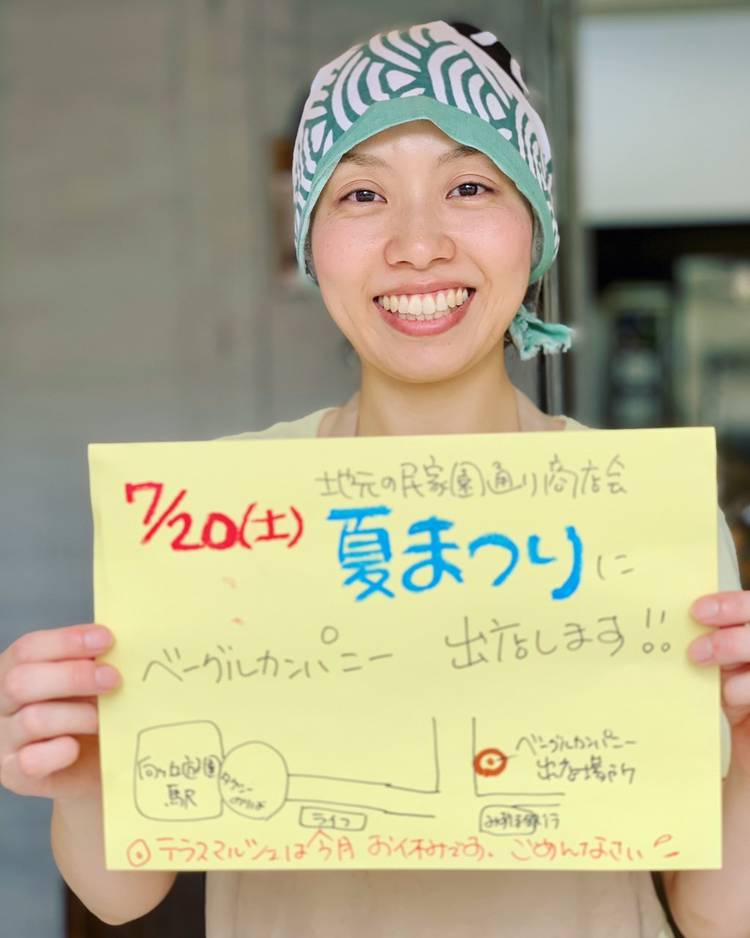 地元の民家園通り商店会
7/20(土) 夏まつりに
ベーグルカンパニー 出店します!!
向ヶ丘遊園駅
タクシーのりば
ライフ
ベーグルカンパニー
出店場所
みずほ銀行
◎テラスマルシェは今月お休みです。ごめんなさい